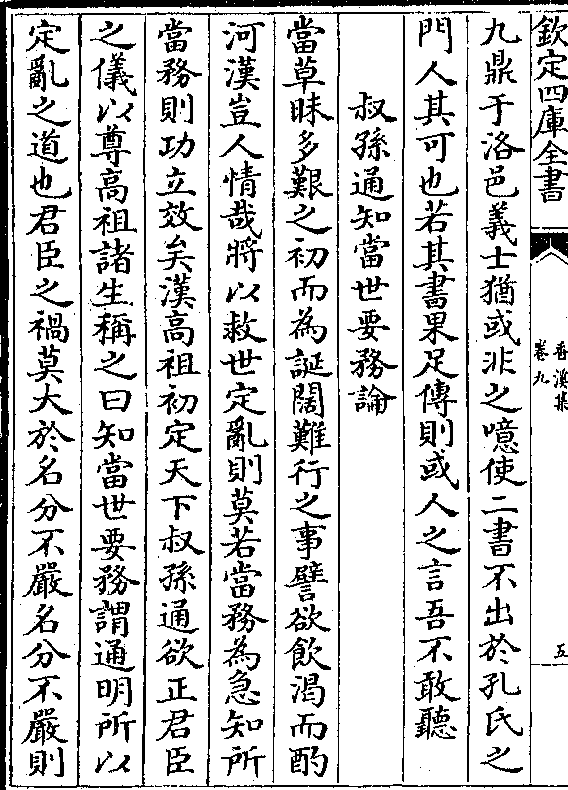 欽定四庫全書
香溪集
卷九
五
九鼎于洛邑義士猶或非之噫使二書不出於孔氏之
門人其可也若其書果足傳則或人之言吾不敢聽
叔孫通知當世要務論
當草昧多艱之初而為誕闊難行之事譬欲飲渴而酌
河漢豈人情哉將以救世定亂則莫若當務為急知所
當務則功立效矣漢高祖初定天下叔孫通欲正君臣
之儀以尊高祖諸生稱之曰知當世要務謂通明所以
定亂之道也君臣之禍莫大於名分不嚴名分不嚴則